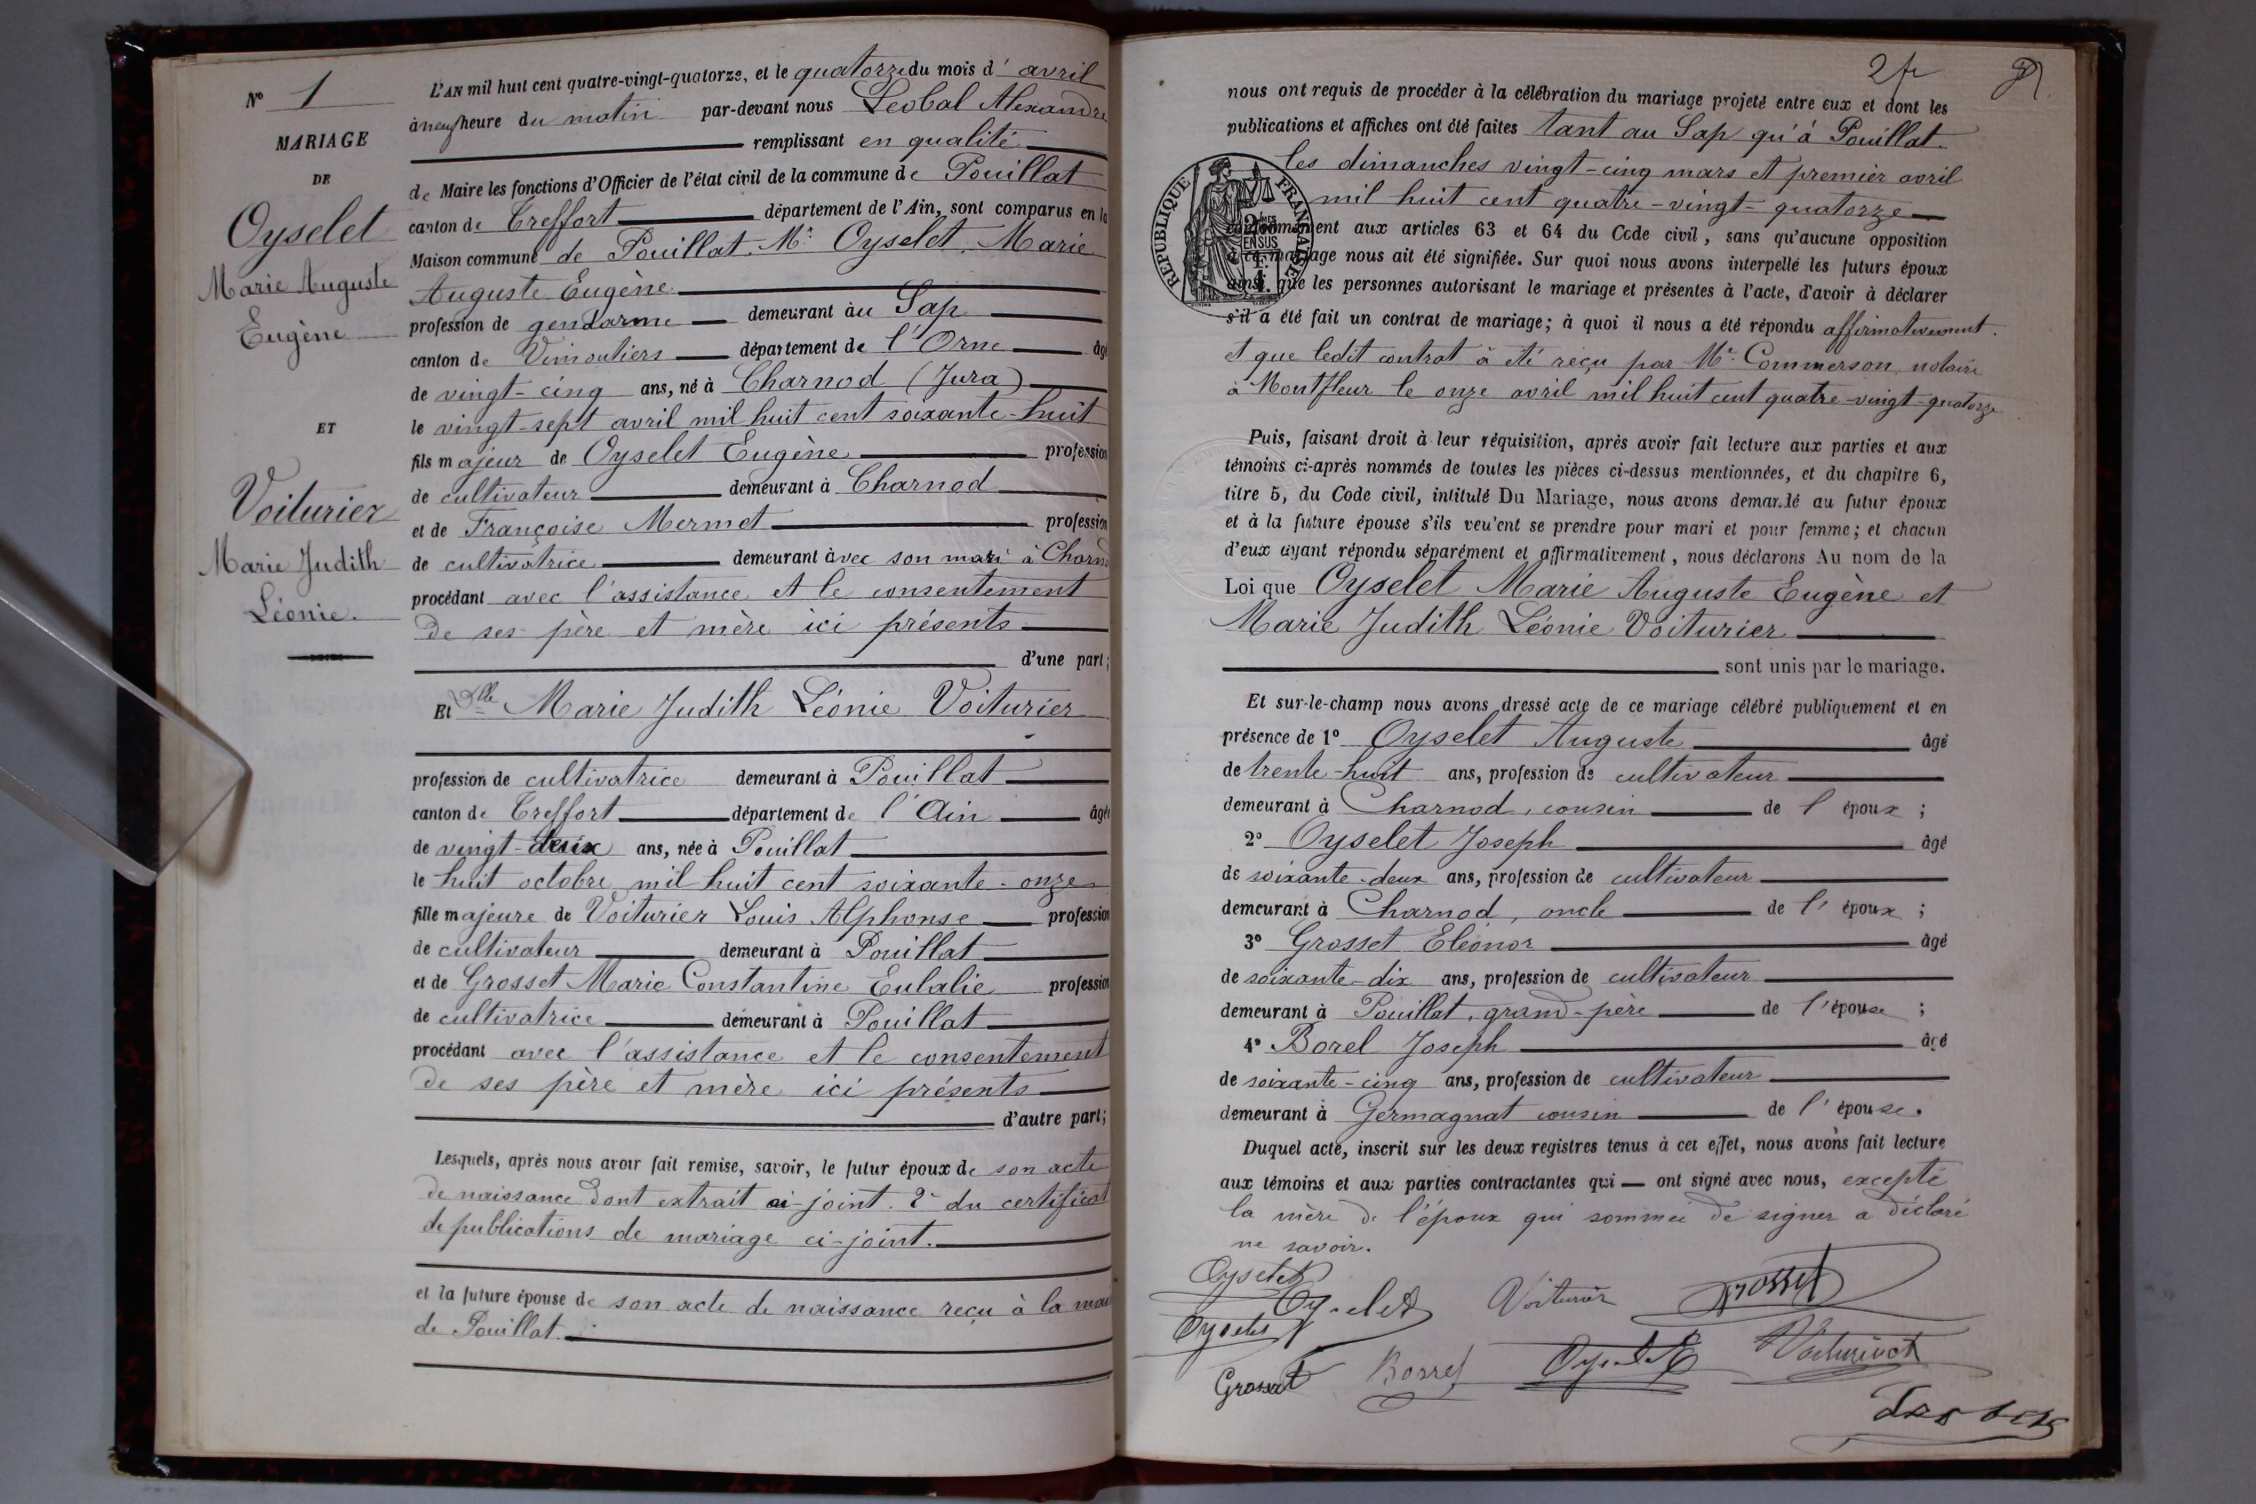 N° 1
MARIAGE
DE
Oyselet
Marie Auguste
Eugène
ET
Voiturier
Marie Judith
Léonie.
L'AN mil huit cent quatre-vingt-quatorze, et le quatorze du mois d' avril
à neuf heure du matin par-devant nous Leobal Alexandre
remplissant en qualité
de Maire les fonctions d'Officier de l'état civil de la commune de Pouillat
canton de Treffort département de l'Ain, sont comparus en la
Maison commune de Pouillat. Mr. Oyselet, Marie
Auguste Eugène
profession de gendarme demeurant au Sap
canton de Vimoutiers département de l'Orne âgé
de vingt-cinq ans, né à Charnod (Jura)
le vingt-sept avril mil huit cent soixante-huit
fils majeur de Oyselet Eugène profession
de cultivateur demeurant à Charnod
et de Françoise Mermet profession
de cultivatrice demeurant avec son mari à Charnod
procédant avec l'assistance et le consentement
de ses père et mère ici présents
d'une part;
Et Dlle Marie Judith Léonie Voiturier
profession de cultivatrice demeurant à Pouillat
canton de Treffort département de l'Ain âgée
de vingt-deux ans, née à Pouillat
le huit octobre mil huit cent soixante-onze
fille majeure de Voiturier Louis Alphonse profession
de cultivateur demeurant à Pouillat
et de Grosset Marie Constantine Eulalie profession
de cultivatrice demeurant à Pouillat
procédant avec l'assistance et le consentement
de ses père et mère ici présents
d'autre part;
Lesquels, après nous avoir fait remise, savoir, le futur époux de son acte
de naissance dont extrait ci-joint. 2° du certificat
de publications de mariage ci-joint.
et la future épouse de son acte de naissance reçu à la
de Pouillat.
2
nous ont requis de procéder à la célébration du mariage projeté entre eux et dont les
publications et affiches ont été faites tant au Sap qu'à Pouillat.
les dimanches vingt-cinq mars et premier avril
mil huit cent quatre-vingt-quatorze
REPUBLIQUE FRANÇAISE
conformément aux articles 63 et 64 du Code civil, sans qu'aucune opposition
à ce mariage nous ait été signifiée. Sur quoi nous avons interpellé les futurs époux
ainsi que les personnes autorisant le mariage et présentes à l'acte, d'avoir à déclarer
s'il a été fait un contrat de mariage; à quoi il nous a été répondu affirmativement.
et que ledit contrat à été reçu par Mr. Commerson, notaire
à Montfleur le onze avril mil huit cent quatre-vingt-quatorze
Puis, faisant droit à leur réquisition, après avoir fait lecture aux parties et aux
témoins ci-après nommés de toutes les pièces ci-dessus mentionnées, et du chapitre 6,
titre 5, du Code civil, intitulé Du Mariage, nous avons demandé au futur époux
et à la future épouse s'ils veulent se prendre pour mari et pour femme; et chacun
d'eux ayant répondu séparément et affirmativement, nous déclarons Au nom de la
Loi que Oyselet Marie Auguste Eugène et
Marie Judith Léonie Voiturier
sont unis par le mariage.
Et sur-le-champ nous avons dressé acte de ce mariage célébré publiquement et en
présence de 1° Oyselet Auguste âgé
de trente-huit ans, profession de cultivateur
demeurant à Charnod, cousin de l'époux;
2° Oyselet Joseph âgé
de soixante-deux ans, profession de cultivateur
demeurant à Charnod, oncle de l'époux;
3° Grosset Eléonor âgé
de soixante-dix ans, profession de cultivateur
demeurant à Pouillat, grand-père de l'épouse;
4° Borel Joseph âgé
de soixante-cinq ans, profession de cultivateur
demeurant à Germagnat cousin de l'épouse.
Duquel acte, inscrit sur les deux registres tenus à cet effet, nous avons fait lecture
aux témoins et aux parties contractantes qui ont signé avec nous, excepté
la mère de l'époux qui sommée de signer a déclaré
ne savoir.
Oyselet
Oyselet Voiturier Grosset
Oyselet
Grosset Borrel Oyselet